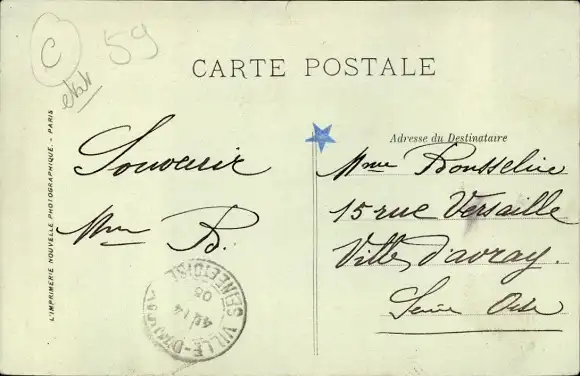 C 59
CARTE POSTALE
Adresse du Destinataire
Souvenir
Mme B.
Mme Rousseline
15 rue Versaille
Ville d'avray.
Seine Oise
VILLE-D'AVRAY
SEINE ET OISE
4E 14
05
L'IMPRIMERIE NOUVELLE PHOTOGRAPHIQUE. - PARIS